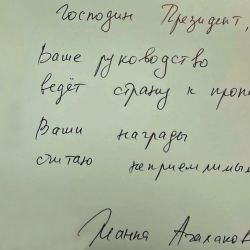 Господин Президент,
Ваше руководство
ведёт страну к проп
Ваши награды
считаю неприемлимым